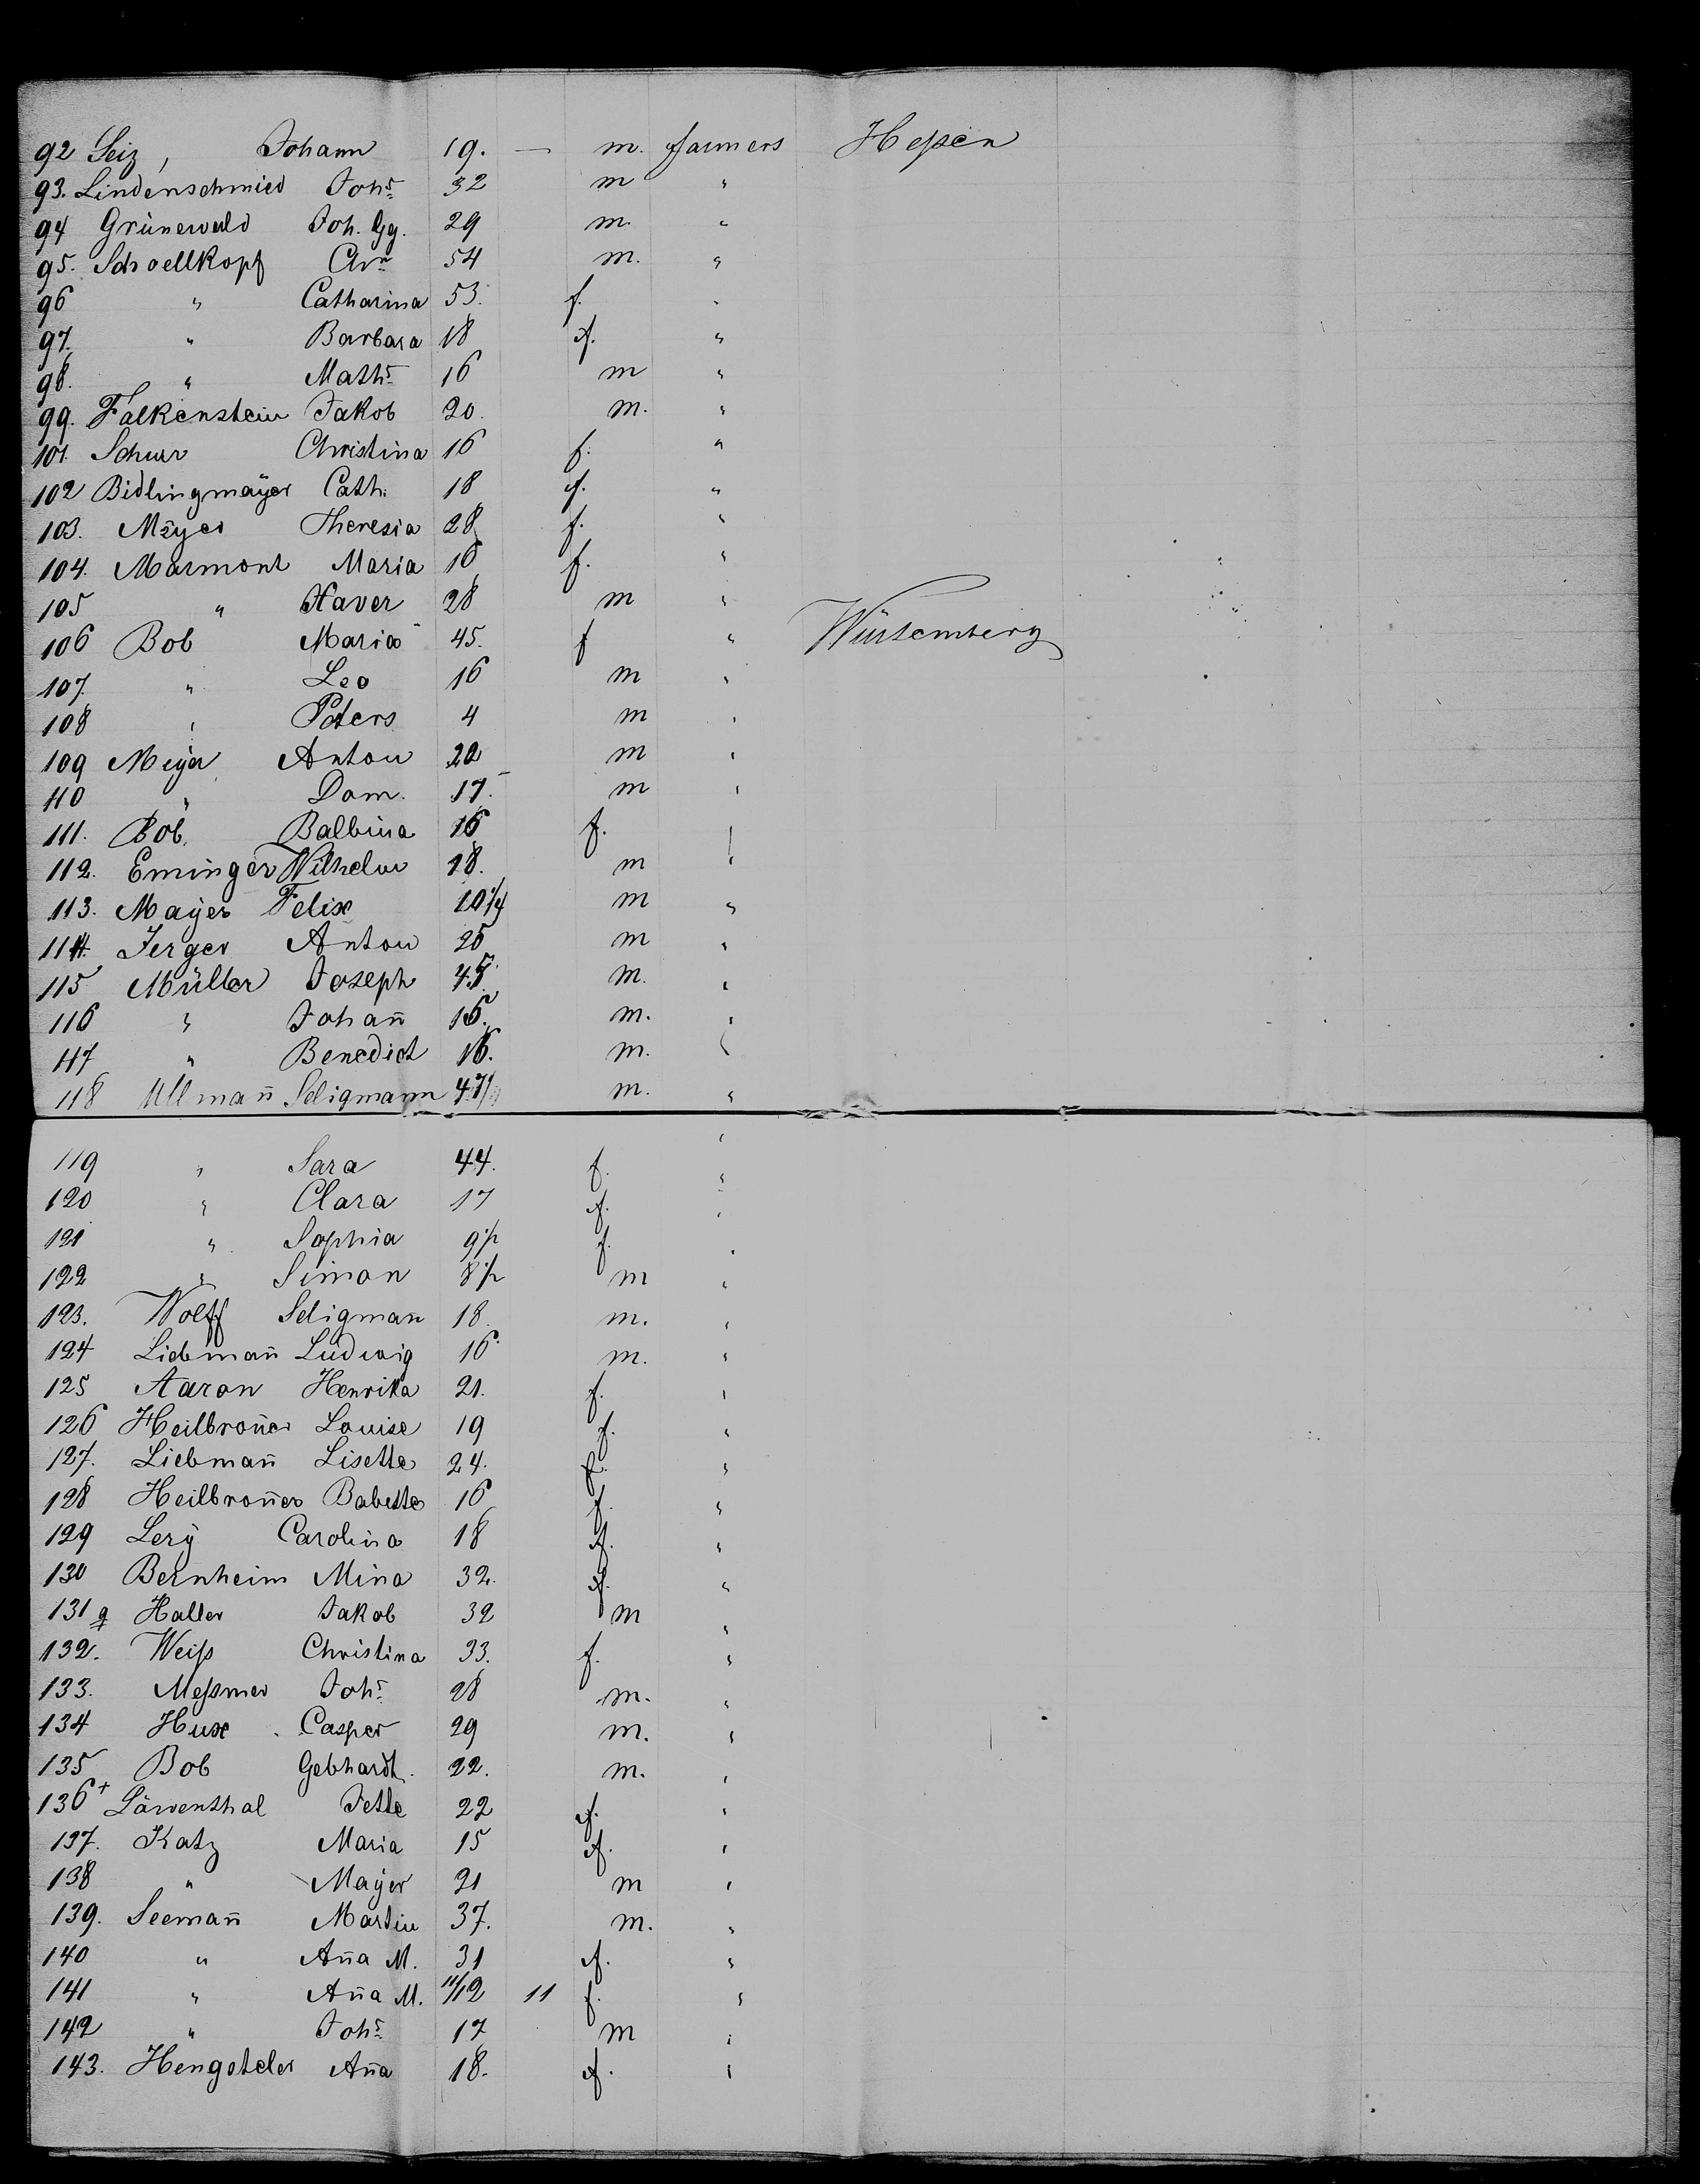 92 Seiz, Johann 19. — m. farmers Heßen
93. Lindenschmied Johs 32 m "
94 Grünewald Joh. Gg. 29 m. "
95. Schoellkopf Chrn 54 m. "
96 " Catharina 53. f. "
97. " Barbara 18 f. "
98. " Maths 16 m "
99. Falkenstein Jakob 20. m. "
101. Schurr Christina 16 f. "
102 Bidlingmaÿer Cath. 18 f. "
103. Theresia 28 f. "
104. Marmont Maria 16 f. "
105 " Xaver 28 m "
106 Bob Maria 45. f " Würtemberg
107. " Leo 16 m "
108 " Peters 4 m "
109 Meÿer Anton 22 m "
110 " Dom. 17. m "
111. Bob. Balbina 16 f. "
112. Eminger Wilhelm 18. m "
113. Maÿer Felix 10 1/4 m "
114. Jerger Anton 25 m "
115 Müller Joseph m. "
116 " Johañ 16. m. "
117 " Benedict 16. m. "
118 Ullmañ Seligmann 47 m. "
119 " Sara 44. f. "
120 " Clara 17 f. "
121 " Sophia 9 1/2 f. "
122 " Simon 8 1/2 m "
123. Wolff Seligmañ 18. m. "
124 Liebmañ Ludwig 16 m. "
125 Aaron Henrika 21. f. "
126 Heilbroñer Louise 19 f. "
127. Liebmañ Lisette 24. f. "
128 Heilbroñer Babette 16 f. "
129 Carolina 18 f. "
130 Bernheim Mina 32. f. "
131 Haller Jakob 32 m "
132. Weiß Christina 33. f. "
133. Meßmer Johs 28 m. "
134 Hux Casper 29 m. "
135 Bob Gebhardt. 22. m. "
136+ Löwenthal Jette 22 f. "
137. Katz Maria 15 f. "
138 " Maÿer 21 m "
139. Seemañ Martin 37. m. "
140 " Aña M. 31 f. "
141 " Aña M. 11/12 11 f. "
142 " Johs 17 m "
143. Hengsteler Aña 18. f. "